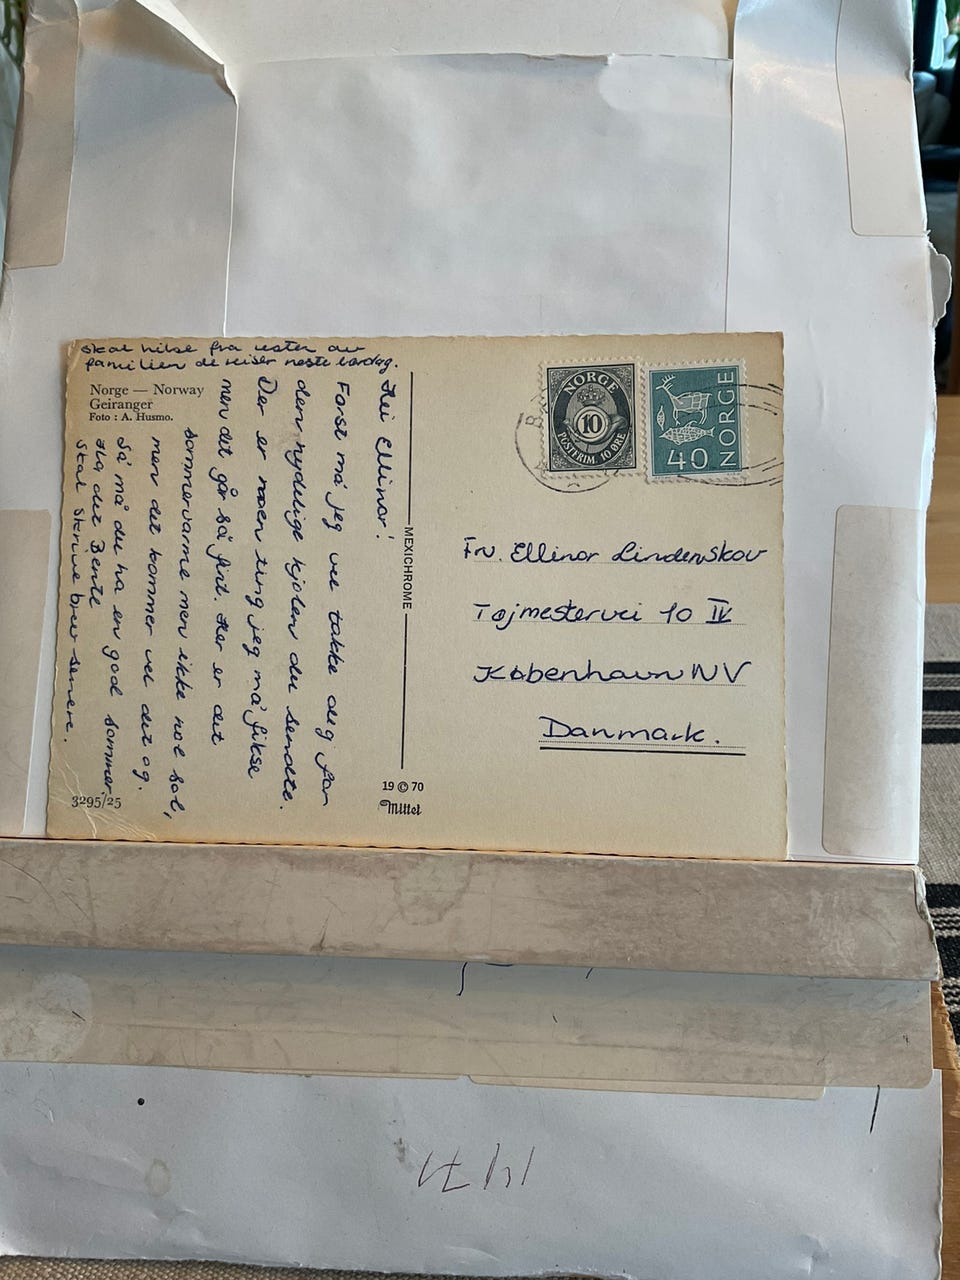 skal hilse fra resten av
familien de reiser neste lørdag.
Norge — Norway
Geiranger
Foto : A. Husmo.
Hei Ellinor!
Først må jeg vel takke deg for
den nydelige kjolen du sendte.
Der er noen ting jeg må fikse
men det går så fint. Her er det
sommervarme men ikke noe sol,
men det kommer vel det og.
Så må du ha en god sommer.
Ha det Bente
skal skrive brev senere.
3295/25
MEXICHROME
19 © 70
Mittet
NORGE
10
POSTFRIM. 10 ØRE
NORGE
40
Frv. Ellinor Lindenskov
Tøjmestervei 10 IV
København NV
Danmark.